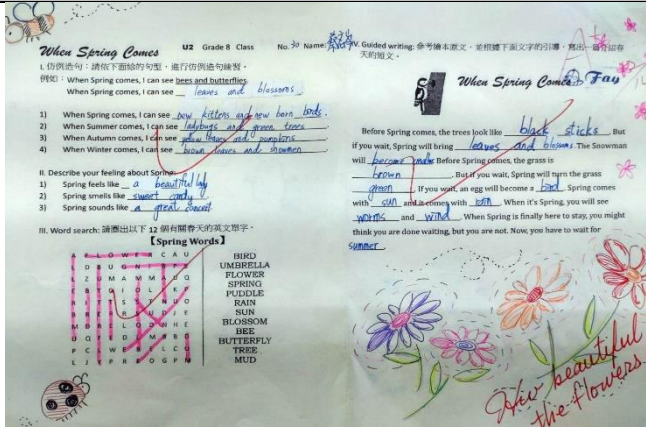 When Spring Comes U2 Grade 8 Class No. 30 Name:
I. 仿例造句：請依下面給的句型，進行仿例造句練習。
例如：When Spring comes, I can see bees and butterflies.
When Spring comes, I can see leaves and blossoms.
1) When Spring comes, I can see new kittens and new born birds.
2) When Summer comes, I can see ladybugs and green trees
3) When Autumn comes, I can see yellow leaves and pumpkins
4) When Winter comes, I can see brown leaves and snowmen
II. Describe your feeling about Spring:
1) Spring feels like a beautiful lady
2) Spring smells like sweet candy
3) Spring sounds like a great concert
III. Word search: 請圈出以下 12 個有關春天的英文單字。
【Spring Words】
BIRD
UMBRELLA
FLOWER
SPRING
PUDDLE
RAIN
SUN
BLOSSOM
BEE
BUTTERFLY
TREE
MUD
IV. Guided writing: 參考繪本原文，並根據下面文字的引導，寫出一篇介紹春
天的短文。
A+
When Spring Comes Fay
Before Spring comes, the trees look like black sticks. But
if you wait, Spring will bring leaves and blossoms. The Snowman
will become smaller. Before Spring comes, the grass is
brown. But if you wait, Spring will turn the grass
green. If you wait, an egg will become a bird. Spring comes
with sun and it comes with rain. When it's Spring, you will see
worms and wind. When Spring is finally here to stay, you might
think you are done waiting, but you are not. Now, you have to wait for
summer.
How beautiful
the flowers